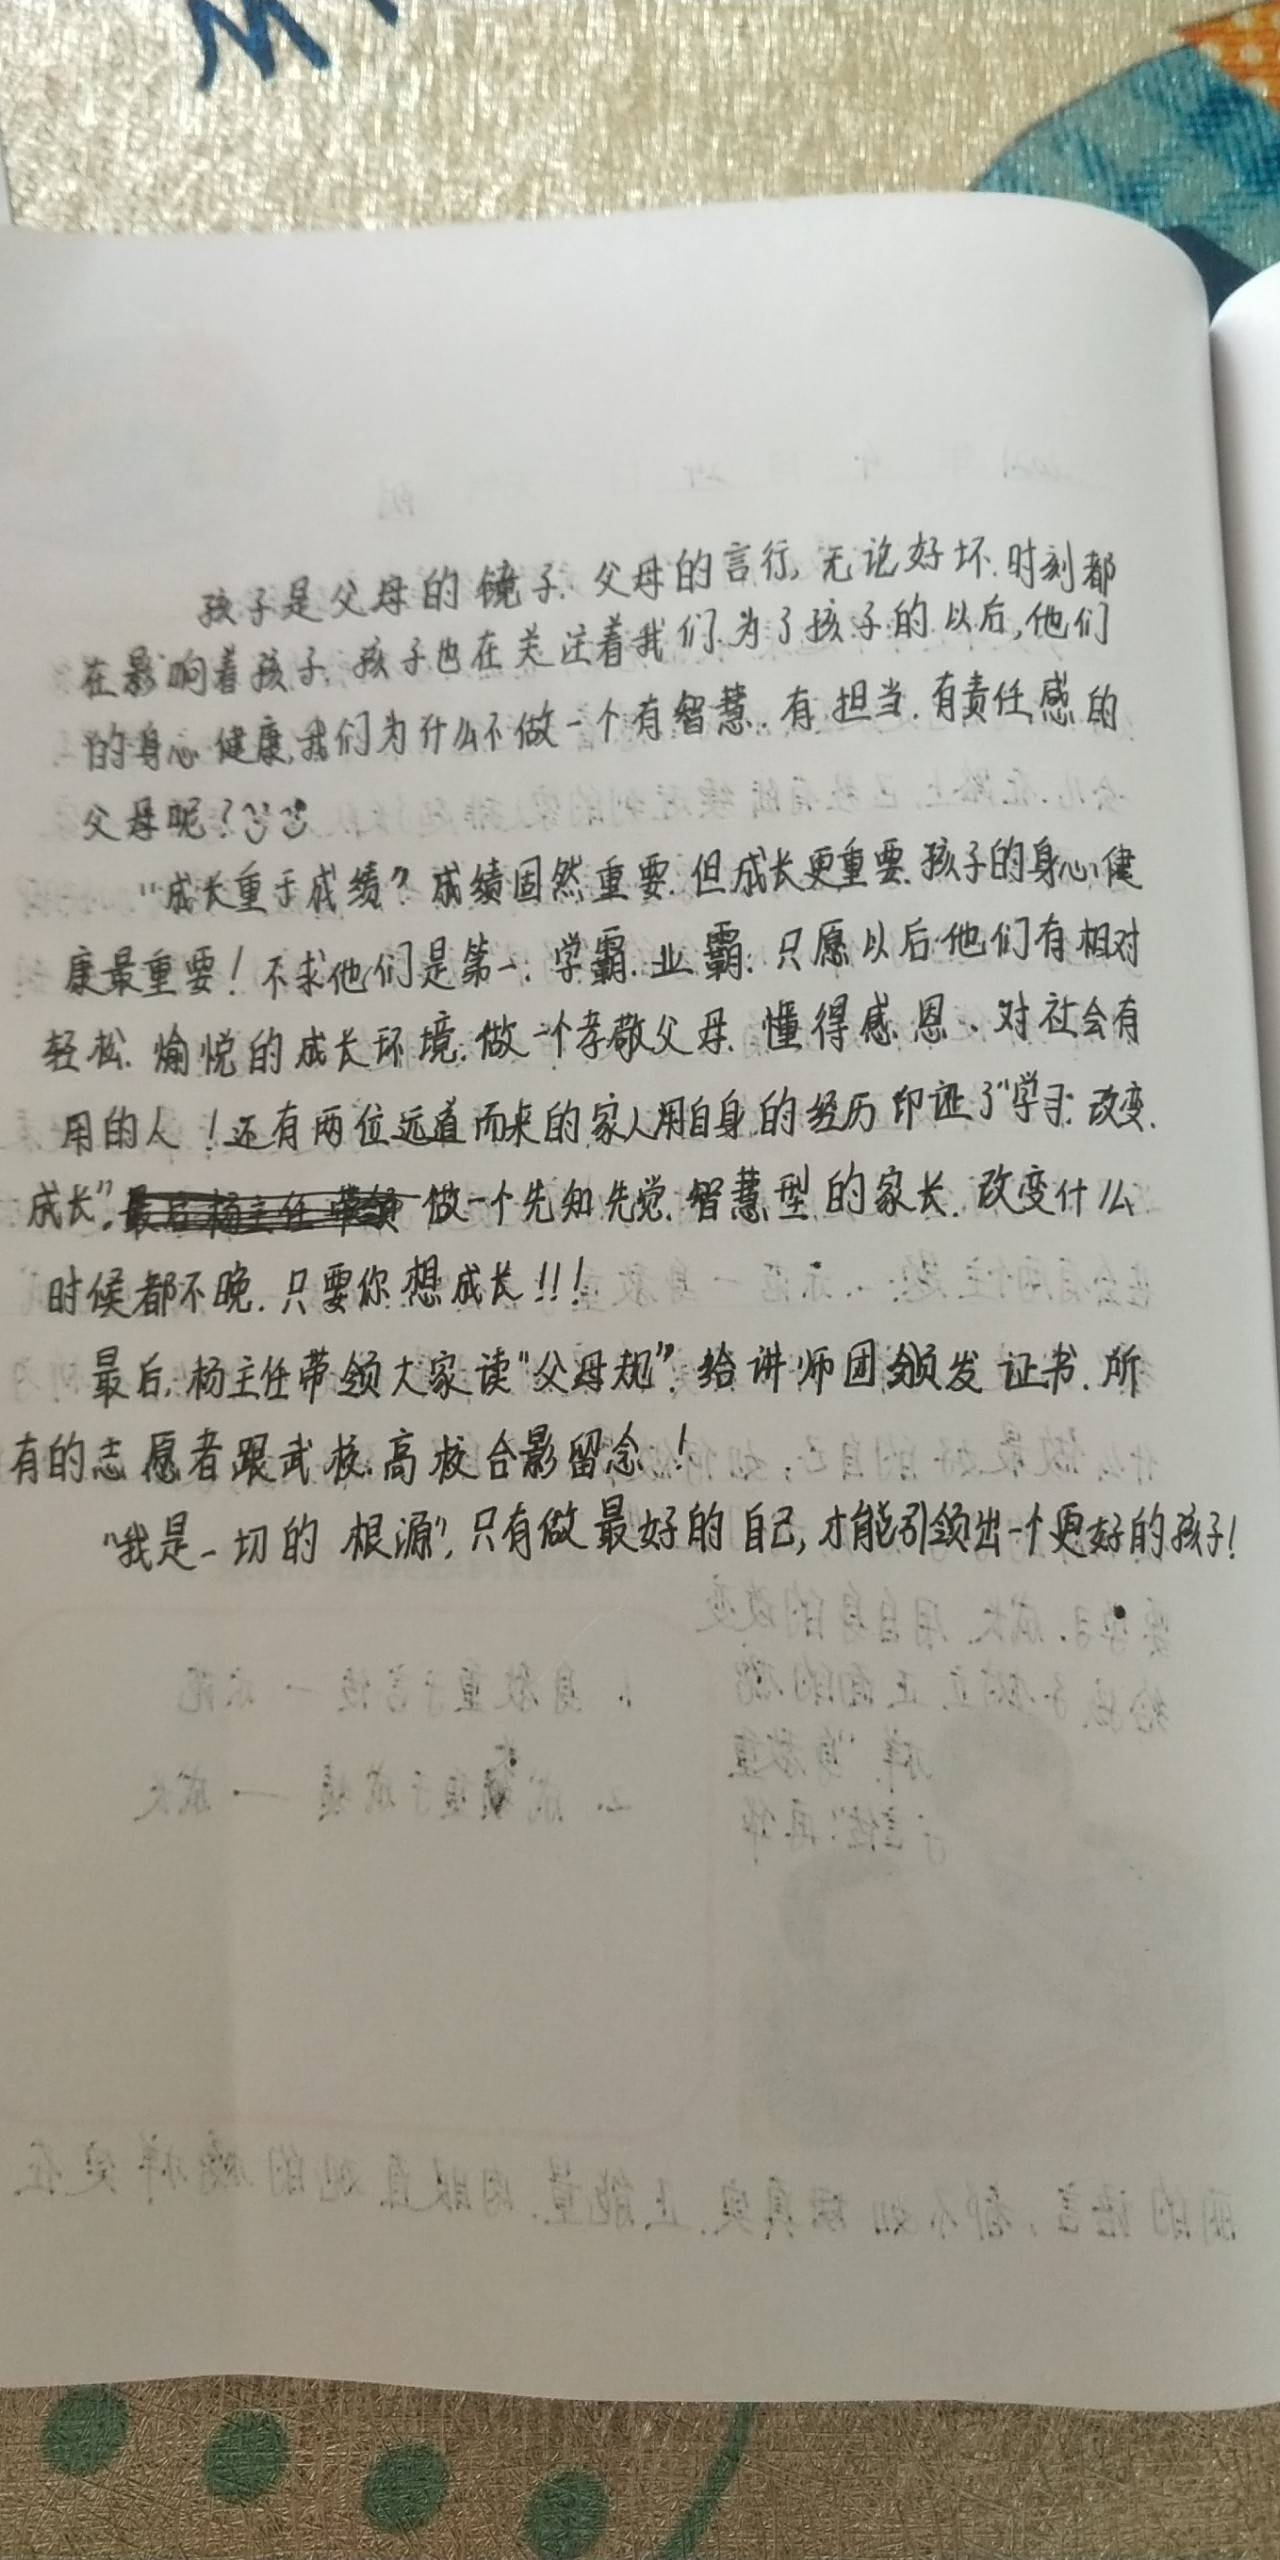 孩子是父母的镜子.父母的言行,无论好坏.时刻都
在影响着孩子,孩子也在关注着我们.为了孩子的以后,他们
的身心健康,我们为什么不做一个有智慧.有担当.有责任感的
父母呢?
"成长重于成绩"?成绩固然重要.但成长更重要.孩子的身心健
康最重要!不求他们是第一.学霸.业霸.只愿以后他们有相对
轻松.愉悦的成长环境.做一个孝敬父母.懂得感恩、对社会有
用的人!还有两位远道而来的家人用自身的经历印证了"学习.改变.
成长",做一个先知先觉.智慧型的家长.改变什么
时候都不晚.只要你想成长!!!
最后,杨主任带领大家读"父母规".给讲师团颁发证书.所
有的志愿者跟武校.高校合影留念!
"我是一切的根源",只有做最好的自己,才能引领出一个更好的孩子!